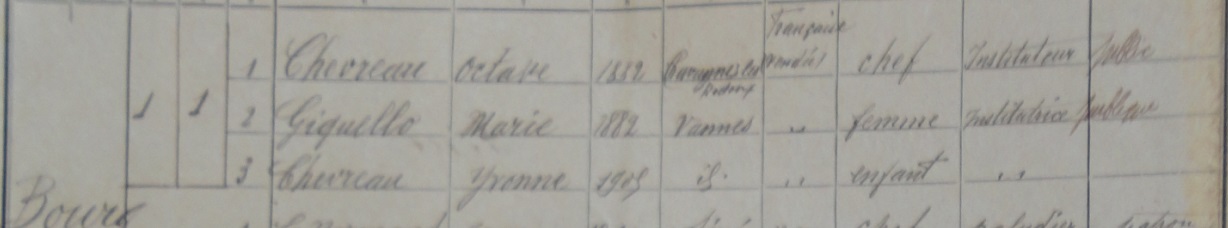 Française
1 Chevreau Octave 1882 chef Instituteur public
1 1
2 Giquello Marie 1882 Vannes " femme Institutrice publique
3 Chevreau Yvonne 1905 id. " enfant "
Bourg
chef paludier patron